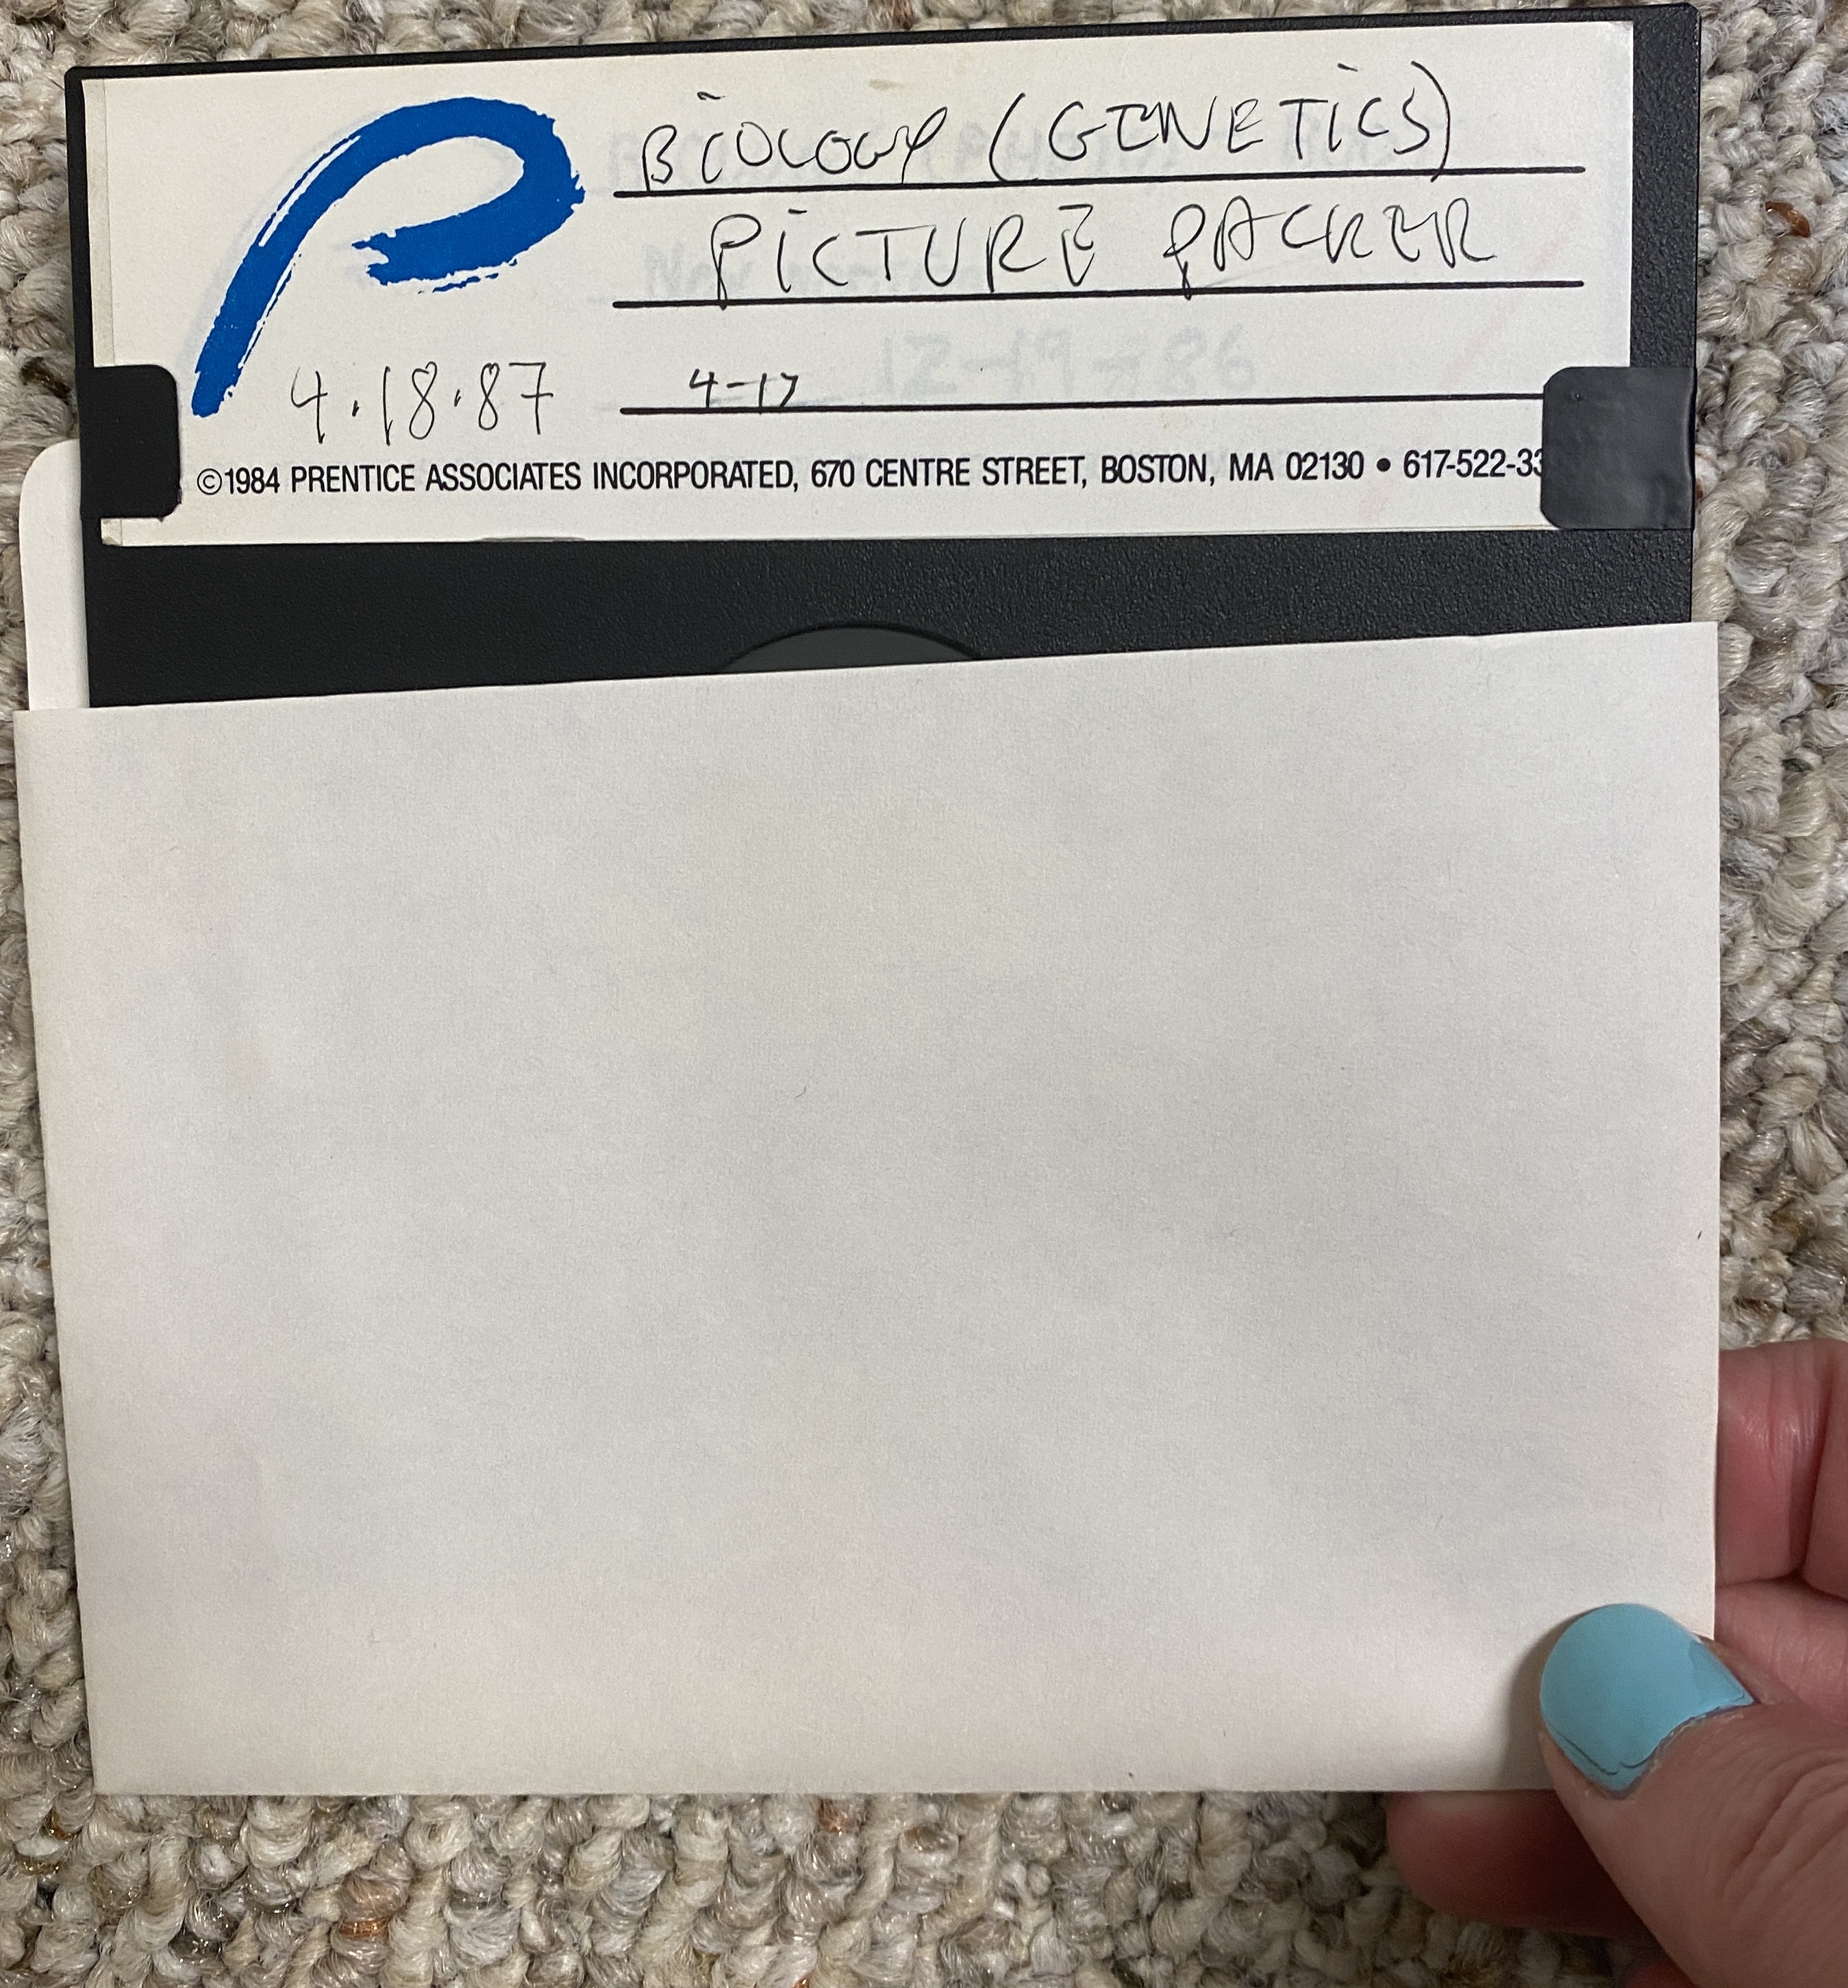 BiOLOGY (GENETiCS)
PiCTURE PACKER
4.18.87 4-17
©1984 PRENTICE ASSOCIATES INCORPORATED, 670 CENTRE STREET, BOSTON, MA 02130 • 617-522-33
12-19-86